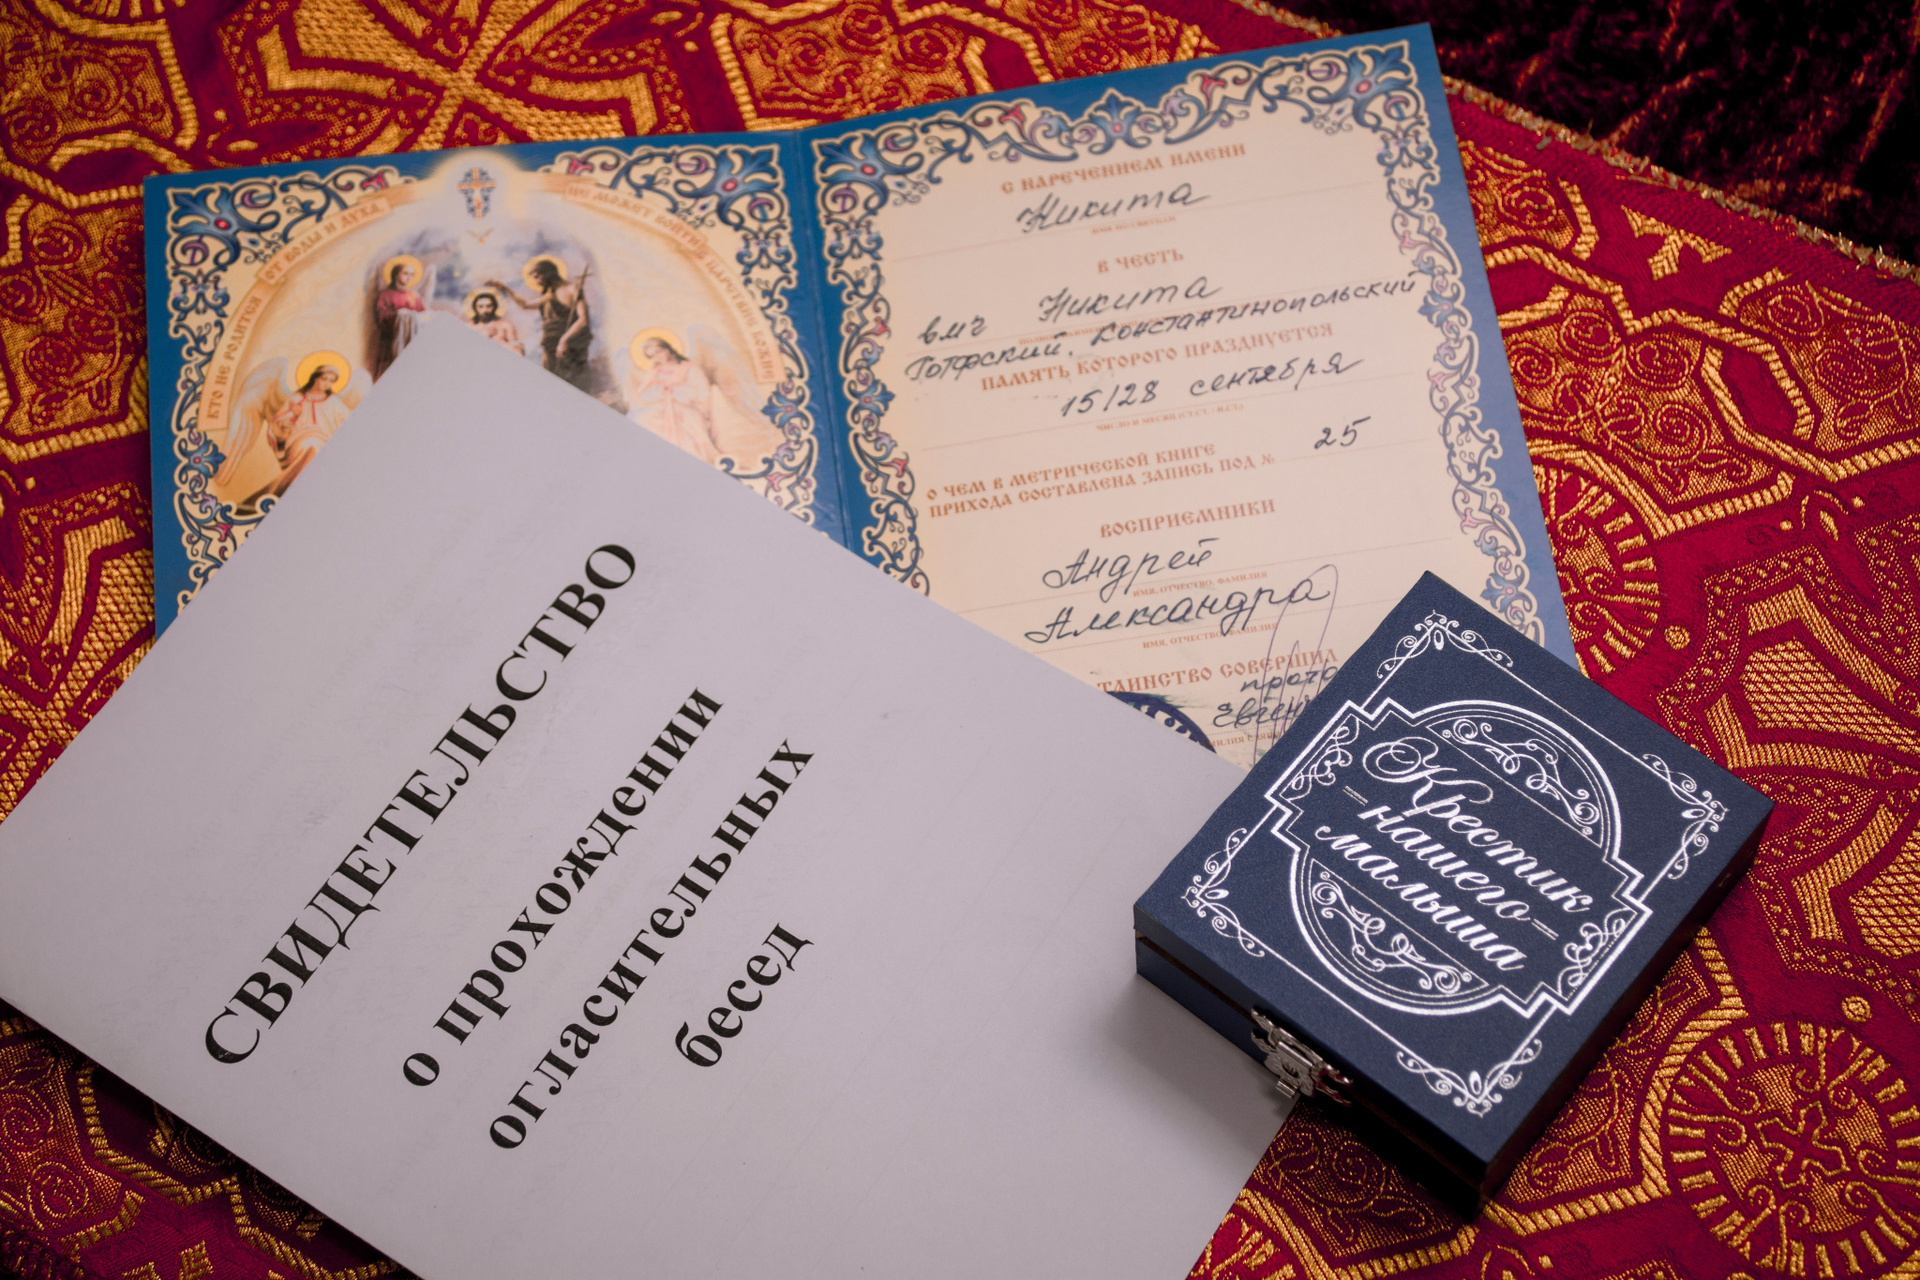 КТО НЕ РОДИТСЯ ОТ ВОДЫ И ДУХА, НЕ МОЖЕТ ВОЙТИ В ЦАРСТВИЕ БОЖИЕ
С НАРЕЧЕНИЕМ ИМЕНИ
Никита
В ЧЕСТЬ
вмч Никита
Готфский. Константинопольский
ПАМЯТЬ КОТОРОГО ПРАЗДНУЕТСЯ
15/28 сентября
ЧИСЛО И МЕСЯЦ (СТ.СТ. / Н.СТ.)
О ЧЕМ В МЕТРИЧЕСКОЙ КНИГЕ
ПРИХОДА СОСТАВЛЕНА ЗАПИСЬ ПОД № 25
ВОСПРИЕМНИКИ
Андрей
ИМЯ, ОТЧЕСТВО, ФАМИЛИЯ
Александра
ИМЯ, ОТЧЕСТВО, ФАМИЛИЯ
ТАИНСТВО СОВЕРШИЛ
прото
Евгени
СВИДЕТЕЛЬСТВО
о прохождении
огласительных
бесед
Крестик
нашего
малыша